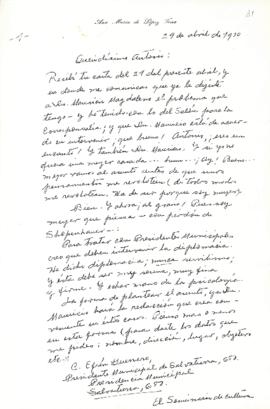 Ana María de López Tena
31
29 de abril de 1970
-1-
Queridísimo Antonio:
Recibí tu carta del 21 del presente abril, y
en donde me comunicas que ya le dijiste
a Lic. Mauricio Magdaleno el problema que
tengo - y he tenido con lo del Salón para la
Correspondencia; y que Don Mauricio está de acuer-
do en intervenir, qué bueno! Antonio, eres un
encanto! Y también Don Mauricio. Y si yo
fuera una mujer casada... hum...! ¡Ay! Bueno...
mejor vamos al asunto antes de que unos
pensamientos me revoloteen (de todos modos
me revolotean. Ha de ser porque soy mujer).
Bien. Y ahora, al grano! Pues soy
mujer que piensa - con perdón de
Shopenhauer -:
Para tratar con Presidentes Municipales
creo que deben intervenir la diplomacia.
He dicho diplomacia; nunca servilismo;
y ésta debe ser muy serena, muy fina
y firme. Y echar mano de la psicología.
La forma de plantear el asunto, y a Don
Mauricio hará la redacción que crea con-
veniente en estos casos. Poco más o menos
en esta forma (para darte los datos que
me pides: nombre, dirección, lugar, objetivo
etc.:
C. Efrén Guerrero,
Presidente Municipal de Salvatierra, Gto.
Presidencia Municipal
Salvatierra, Gto.
El Seminario de Cultura